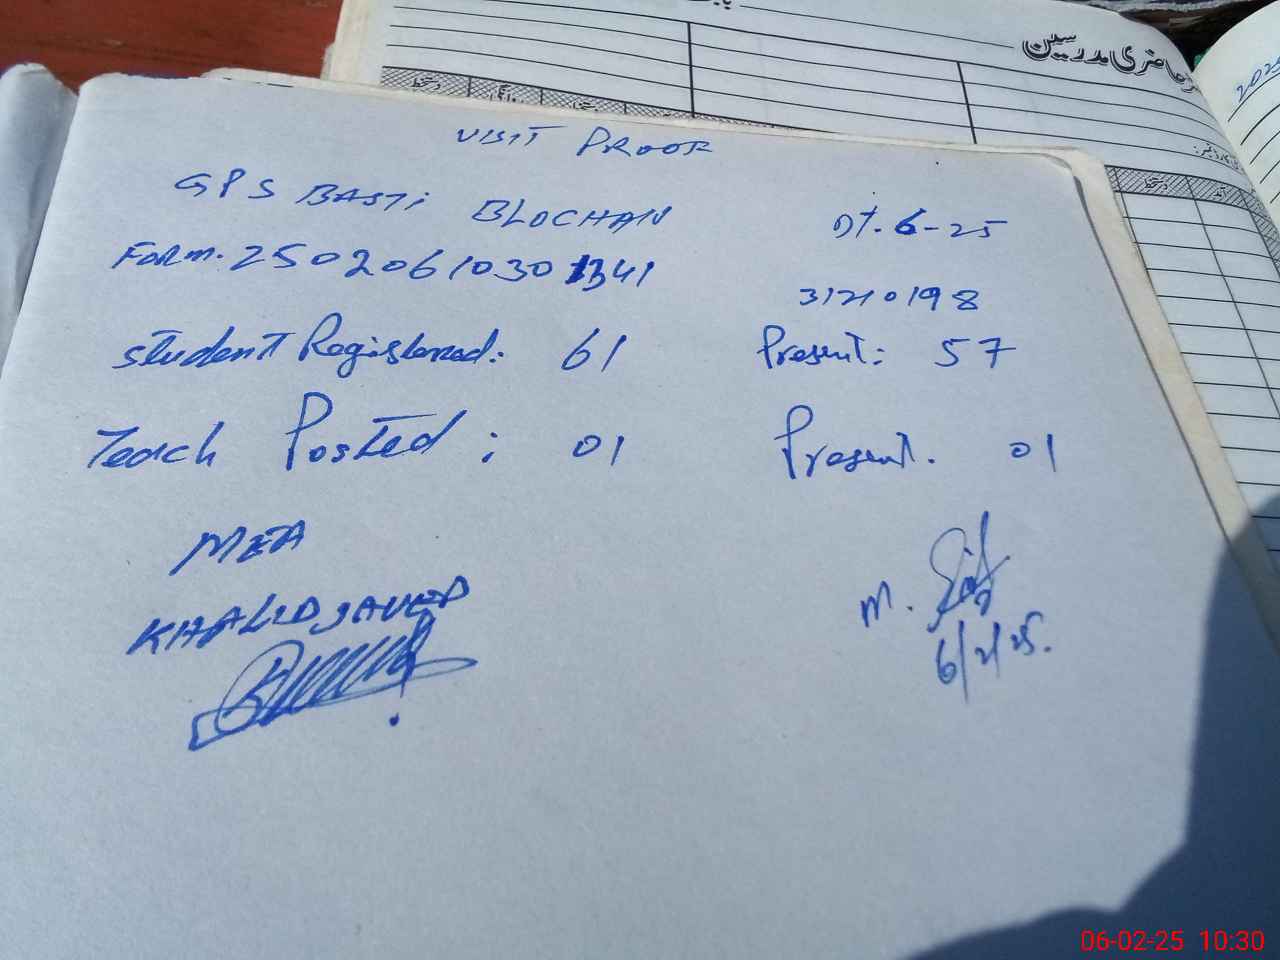 حاضری مدرسین
2025
دستخط
دستخط آمد
VISIT PROOF
GPS BASTI BLOCHAN
Dt. 6-25
FORM. 25020610301341
31210198
Student Registered: 61 Present: 57
Teach Posted : 01 Present. 01
MEA
KHALID JAVED
M.
6/2/25.
06-02-25 10:30